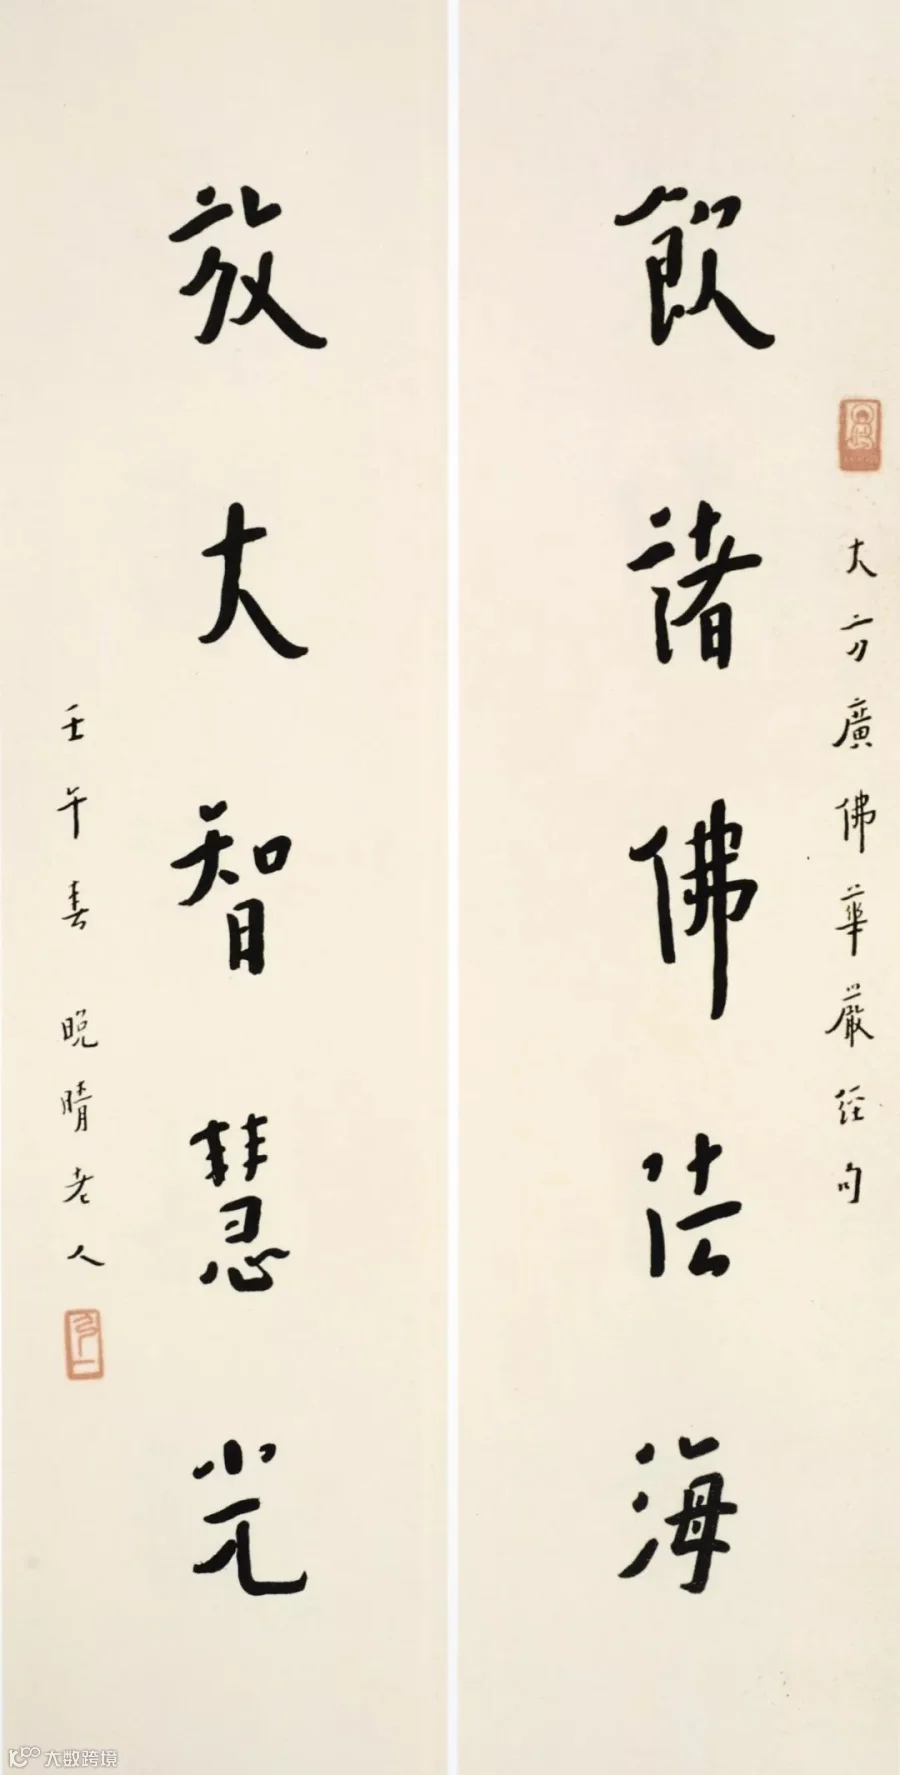 大方廣佛華嚴經句
飲諸佛法海
放大智慧光
壬午春晚晴老人
大数跨境